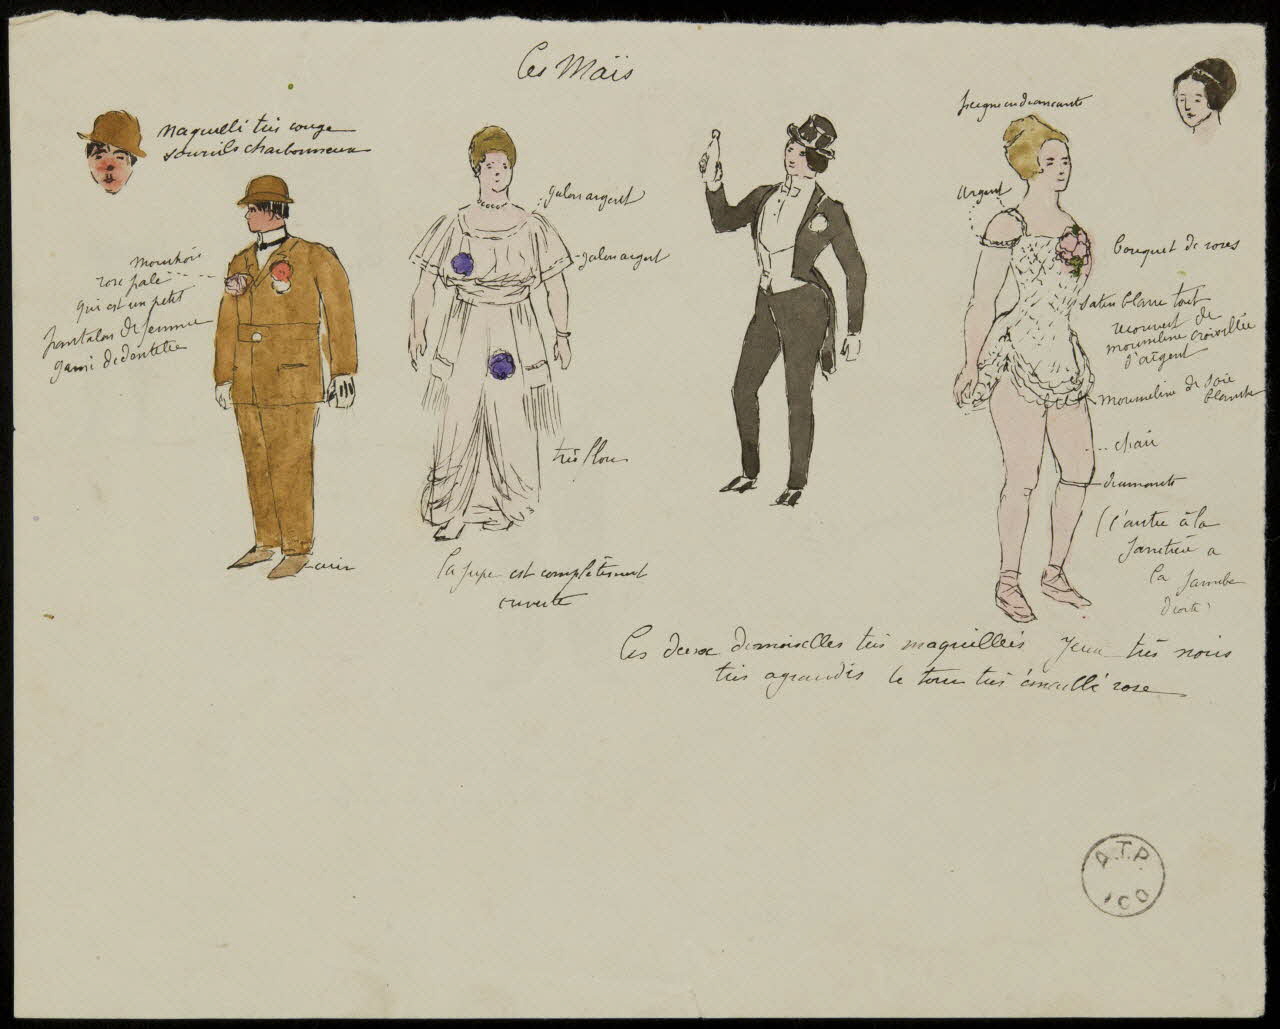 Les Maïs
maquillé très rouge
sourcils charbonneux
mouchoir
rose pâle
qui est un petit
pantalon de femme
garni de dentelle
cuir
galon argent
galon argent
très flou
la jupe est complètement
ouverte
peigne en diamants
argent
bouquet de roses
satin blanc tout
recouvert de
mousseline croisillée
d'argent
mousseline de soie
blanche
chair
diamants
(l'autre à la
jarretière a
la jambe
droite)
les deux demoiselles très maquillées yeux très noirs
très agrandis le tour très émaillé rose
A.T.P.
ICO